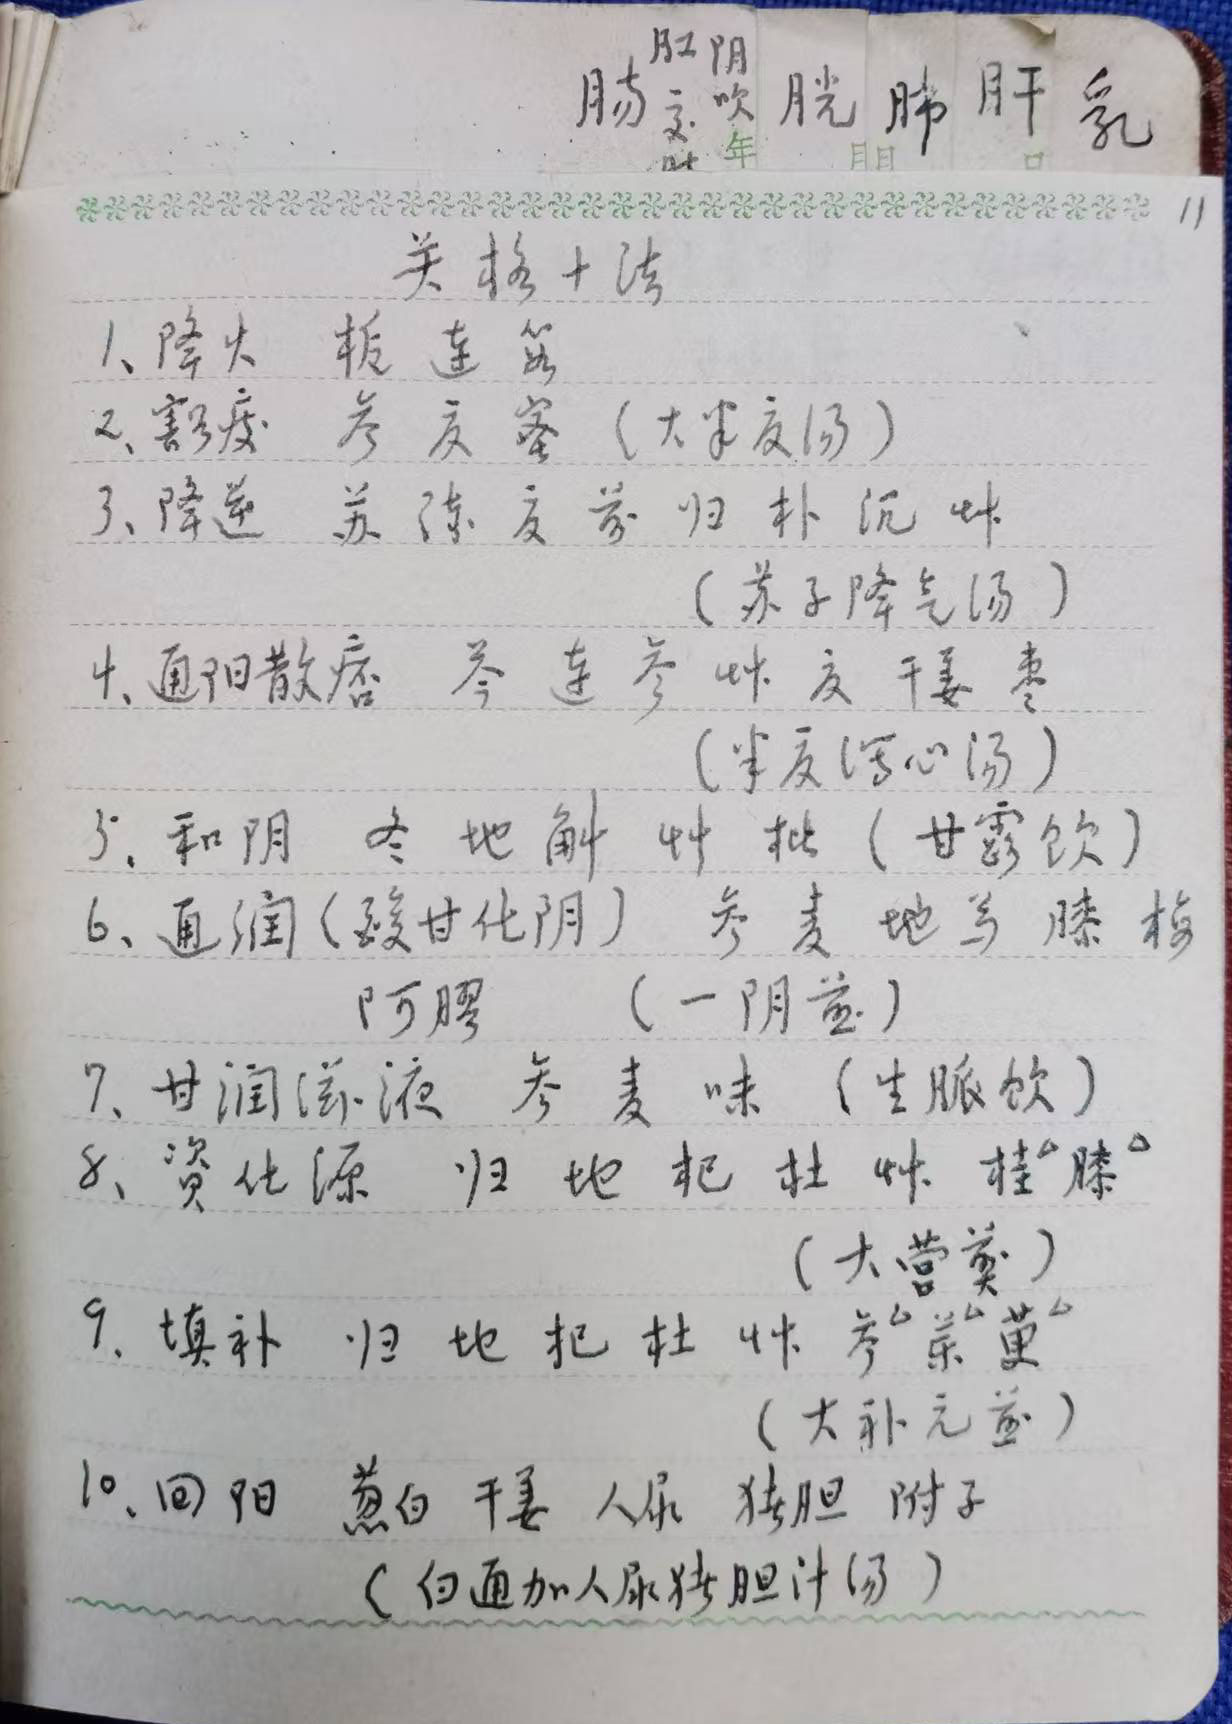 肠 肛 阴吹 胱 肺 肝 乳
交
年 月 日
11
关格十法
1、降火 栀 连 箬
2、豁痰 参 夏 蜜（大半夏汤）
3、降逆 苏 陈 夏 前 归 朴 沉 艸
（苏子降气汤）
4、通阳散痞 芩 连 参 艸 夏 干姜 枣
（半夏泻心汤）
5、和阴 冬 地 斛 艸 枇（甘露饮）
6、通润（酸甘化阴） 参 麦 地 芍 膝 梅
阿膠 （一阴煎）
7、甘润滋液 参 麦 味（生脉饮）
8、资化源 归 地 杞 杜 艸 桂△膝△
（大营煎）
9、填补 归 地 杞 杜 艸 参△ 茱△萸△
（大补元煎）
10、回阳 葱白 干姜 人尿 猪胆 附子
（白通加人尿猪胆汁汤）